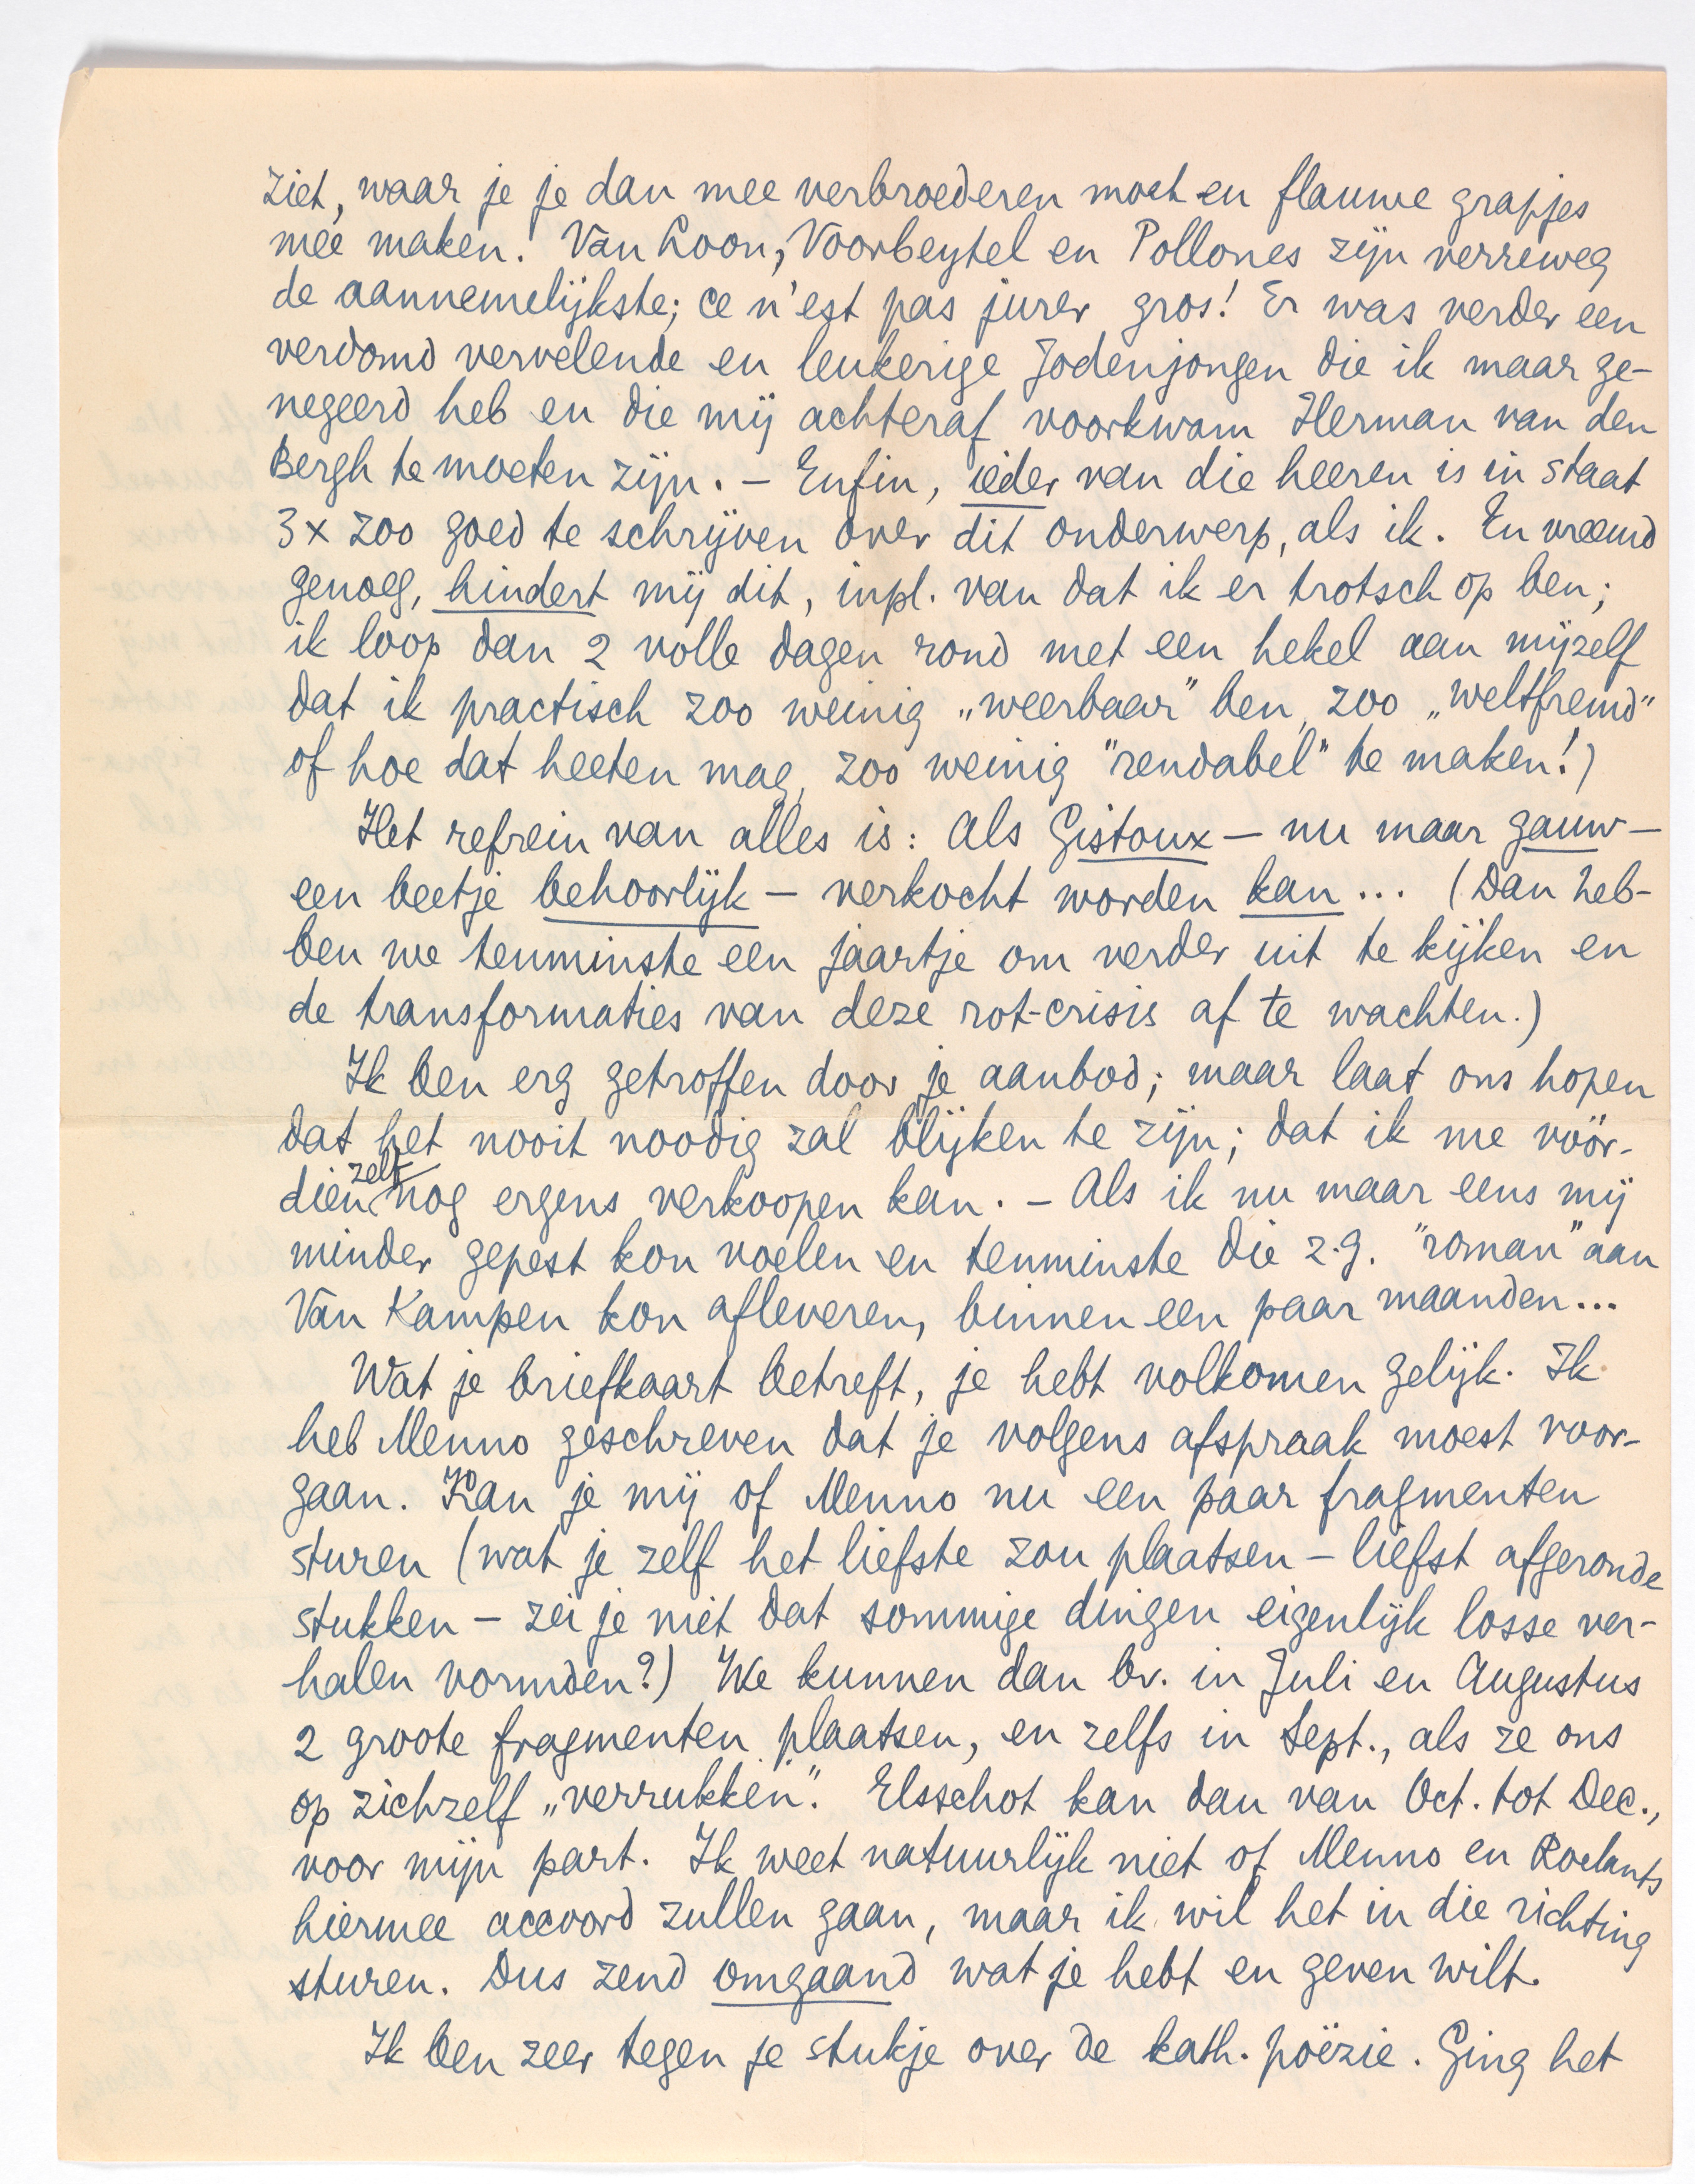 ziet, waar je je dan mee verbroederen moet en flauwe grapjes
mee maken. Van Loon, Voorbeytel en Pollones zijn verreweg
de aannemelijkste; ce n'est pas jurer gros! Er was verder een
verdomd vervelende en leukerige Jodenjongen die ik maar ge-
negeerd heb en die mij achteraf voorkwam Herman van den
Bergh te moeten zijn. – Enfin, ieder van die heeren is in staat
3 x zoo goed te schrijven over dit onderwerp, als ik. En vreemd
genoeg, hindert mij dit, inpl. van dat ik er trotsch op ben;
ik loop dan 2 volle dagen rond met een hekel aan mijzelf
dat ik practisch zoo weinig „weerbaar” ben, zoo „weltfremd”
of hoe dat heeten mag, zoo weinig "rendabel" te maken!)
Het refrein van alles is: als Gistoux – nu maar gauw –
een beetje behoorlijk – verkocht worden kan... (Dan heb-
ben we tenminste een jaartje om verder uit te kijken en
de transformaties van deze rot-crisis af te wachten.)
Ik ben erg getroffen door je aanbod; maar laat ons hopen
dat het nooit noodig zal blijken te zijn; dat ik me vóór-
dien zelf nog ergens verkoopen kan. – Als ik nu maar eens mij
minder gepest kon voelen en tenminste die z.g. "roman" aan
Van Kampen kon afleveren, binnen een paar maanden...
Wat je briefkaart betreft, je hebt volkomen gelijk. Ik
heb Menno geschreven dat je volgens afspraak moest voor-
gaan. Kan je mij of Menno nu een paar fragmenten
sturen (wat je zelf het liefste zou plaatsen – liefst afgeronde
stukken – zei je niet dat sommige dingen eigenlijk losse ver-
halen vormden?) We kunnen dan bv. in Juli en Augustus
2 groote fragmenten plaatsen, en zelfs in Sept., als ze ons
op zichzelf „verrukken”. Elsschot kan dan van Oct. tot Dec.,
voor mijn part. Ik weet natuurlijk niet of Menno en Roelants
hiermee accoord zullen gaan, maar ik wil het in die richting
sturen. Dus zend omgaand wat je hebt en geven wilt.
Ik ben zeer tegen je stukje over de kath. poëzie. Ging het